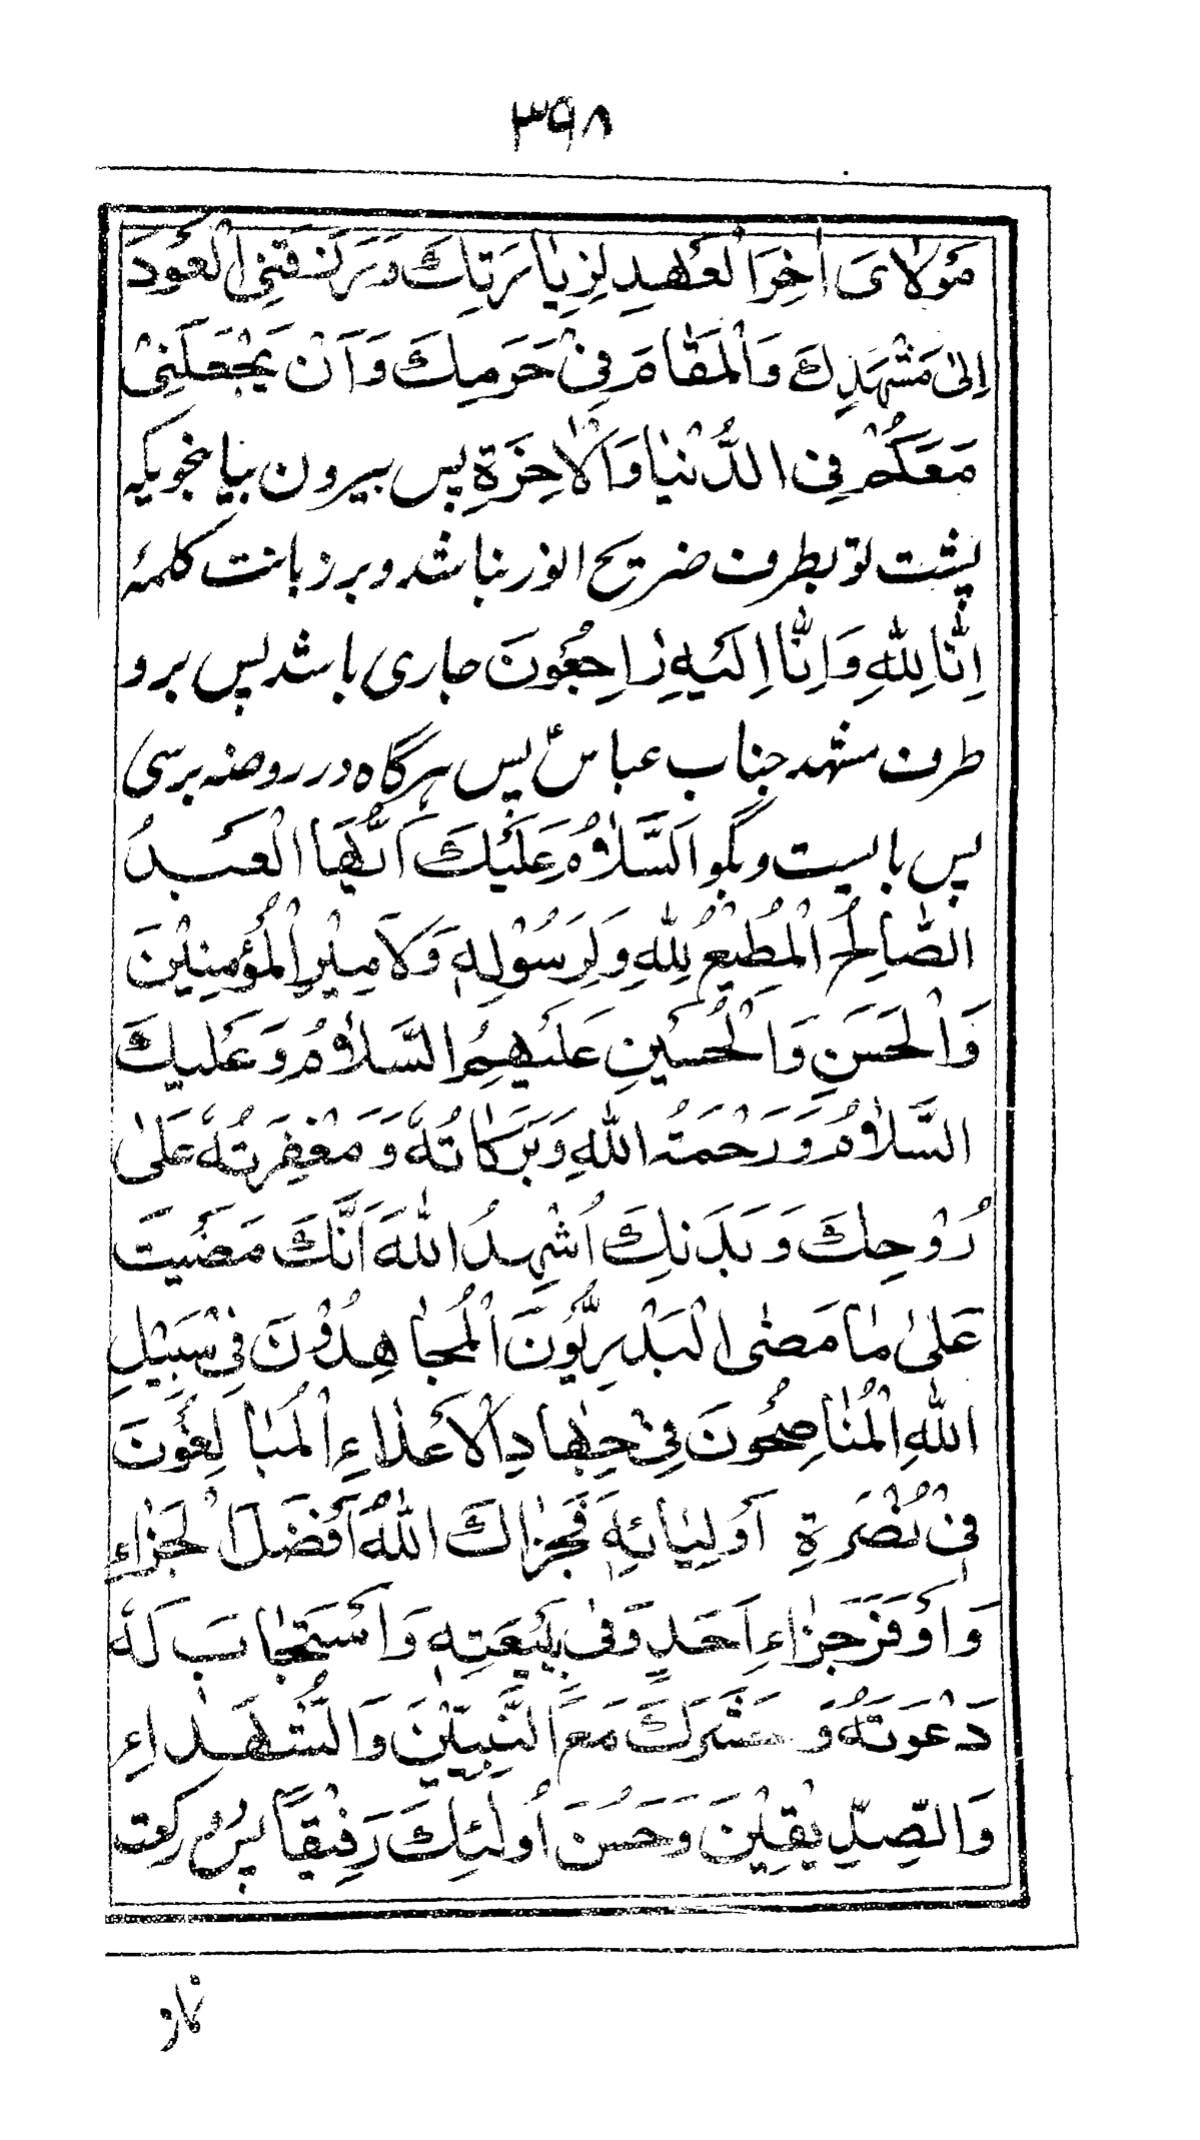 ۳۹۸
مَوْلَایَ اٰخِرَ الْعَهْدِ لِزِیَارَتِكَ وَیَرْزُقَنِی الْعَوْدَ
اِلٰی مَشْهَدِكَ وَالْمَقَامَ فِیْ حَرَمِكَ وَاَنْ یَجْعَلَنِیْ
مَعَكُمْ فِی الدُّنْیَا وَالْاٰخِرَةِ پس بیرون بیا بنحویکه
پشت تو بطرف ضریح انور نباشد و بر زبانت کلمهٔ
اِنَّا لِلّٰهِ وَاِنَّا اِلَیْهِ رَاجِعُوْنَ جاری باشد پس برو
طرف مشهد جناب عباسؑ پس هرگاه در روضه برسی
پس بایست و بگو اَلسَّلَامُ عَلَیْكَ اَیُّهَا الْعَبْدُ
الصَّالِحُ الْمُطِیْعُ لِلّٰهِ وَلِرَسُوْلِهٖ وَلِاَمِیْرِ الْمُؤْمِنِیْنَ
وَالْحَسَنِ وَالْحُسَیْنِ عَلَیْهِمُ السَّلَامُ وَعَلَیْكَ
السَّلَامُ وَرَحْمَةُ اللّٰهِ وَبَرَكَاتُهٗ وَمَغْفِرَتُهٗ عَلٰی
رُوْحِكَ وَبَدَنِكَ اُشْهِدُ اللّٰهَ اَنَّكَ مَضَیْتَ
عَلٰی مَا مَضٰی الْبَدْرِیُّوْنَ الْمُجَاهِدُوْنَ فِیْ سَبِیْلِ
اللّٰهِ الْمُنَاصِحُوْنَ فِیْ جِهَادِ الْاَعْدَاءِ الْمُبَالِغُوْنَ
فِیْ نُصْرَةِ اَوْلِیَائِهٖ فَجَزَاكَ اللّٰهُ اَفْضَلَ الْجَزَاءِ
وَاَوْفَرَ جَزَاءِ اَحَدٍ وَفٰی بِبَیْعَتِهٖ وَاَسْتَجَابَ لَهٗ
دَعْوَتَهٗ وَحَشَرَكَ مَعَ النَّبِیِّیْنَ وَالشُّهَدَاءِ
وَالصِّدِّیْقِیْنَ وَحَسُنَ اُولٰئِكَ رَفِیْقًا پس دو رکعت
نماز